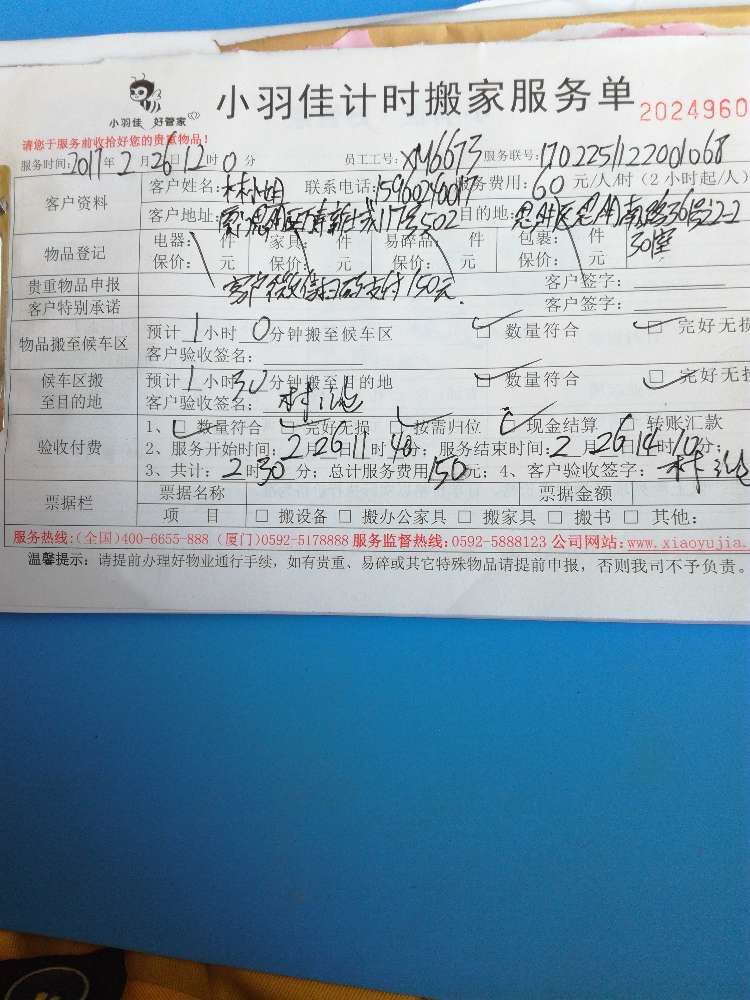 小羽佳 好管家
小羽佳计时搬家服务单 2024960
请您于服务前收拾好您的贵重物品!
服务时间:2017年2月26日12时0分 员工工号:XM6673 服务联号:1702251122001068
客户资料 客户姓名:林小姐 联系电话:15960240017 服务费用:60元/人/时(2小时起/人)
客户地址: 117号502 目的地:思明区思明南路36号22-2
30室
物品登记 电器: 件 家具: 件 易碎品: 件 包裹: 件
保价: 元 保价: 元 保价: 元 保价: 元
贵重物品申报 客户微信扫码支付150元. 客户签字:
客户特别承诺 客户签字:
物品搬至候车区 预计1小时0分钟搬至候车区 数量符合 完好无损
客户验收签名:
候车区搬至目的地 预计1小时30分钟搬至目的地 数量符合 完好无损
客户验收签名:
验收付费 1、数量符合 完好无损 按需归位 现金结算 转账汇款
2、服务开始时间:2月26日11时40分;服务结束时间:2月26日14时10分;
3、共计:2时30分;总计服务费用150元;4、客户验收签字:
票据栏 票据名称 票据金额
项目 搬设备 搬办公家具 搬家具 搬书 其他:
服务热线:(全国)400-6655-888 (厦门)0592-5178888 服务监督热线:0592-5888123 公司网站:www.xiaoyujia.
温馨提示:请提前办理好物业通行手续,如有贵重、易碎或其它特殊物品请提前申报,否则我司不予负责。